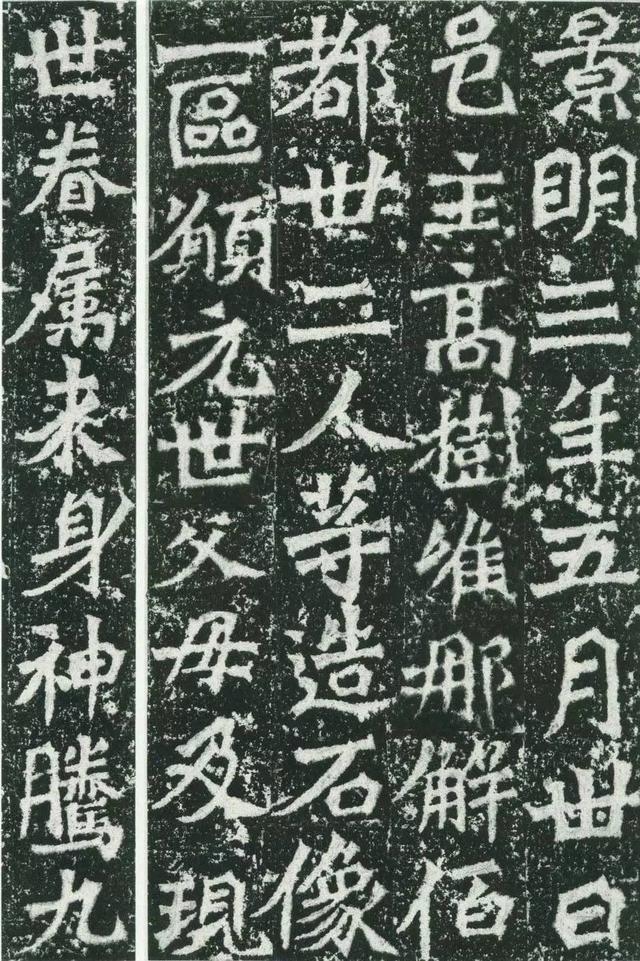 景明三年五月卅日
邑主髙樹唯那解佰
都卅二人等造石像
一區願元世父母及現
世眷属来身神騰九